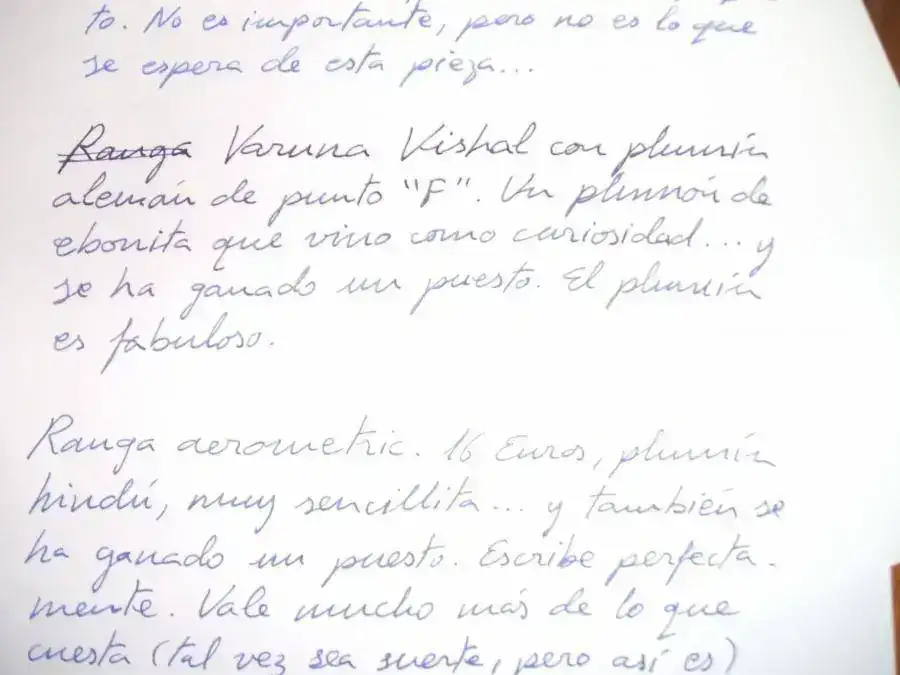 to. No es importante, pero no es lo que
se espera de esta pieza...
Ranga Varuna Vishal con plumín
alemán de punto "F". Un plumón de
ebonita que vino como curiosidad... y
se ha ganado un puesto. El plumín
es fabuloso.
Ranga aerometric. 16 Euros, plumín
hindú, muy sencillita... y también se
ha ganado un puesto. Escribe perfecta-
mente. Vale mucho más de lo que
cuesta (tal vez sea suerte, pero así es)